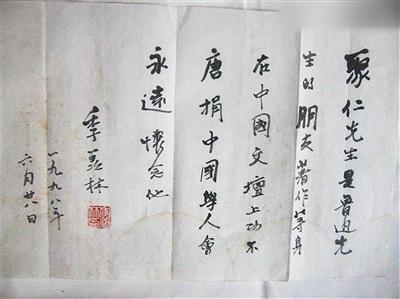 聚仁先生是鲁迅先
生的朋友著作等身
在中國文壇上功不
唐捐中國學人會
永遠懷念他
季羡林
一九九八年
六月廿八日